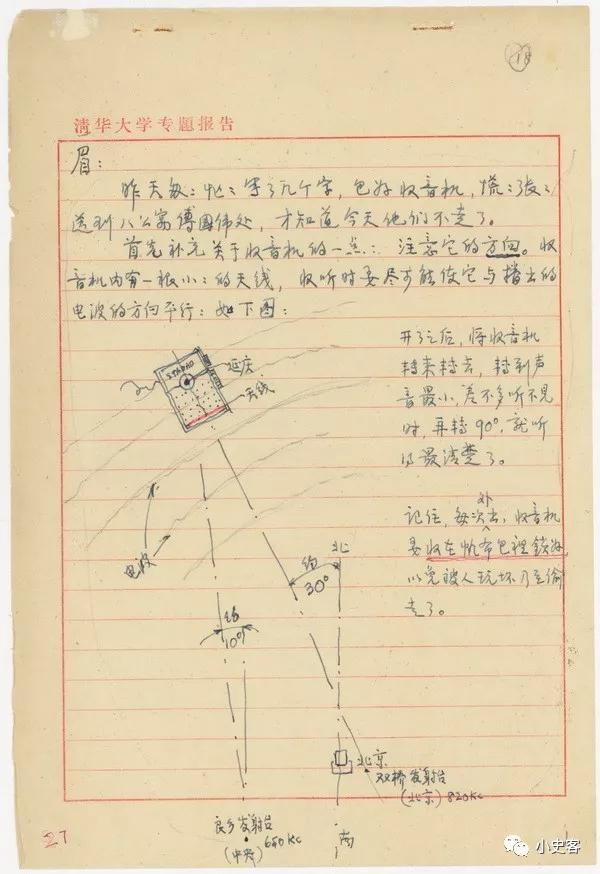 18
清华大学专题报告
眉：
昨天匆：忙：写了几个字，包好收音机，慌：张：
送到八公寓傅国伟处，才知道今天他们不走了。
首先补充关于收音机的一点：注意它的方向。收
音机内有一根小：的天线，收听时要尽可能使它与播出的
电波的方向平行：如下图：
开了之后，将收音机
转来转去，转到声
音最小，差不多听不见
时，再转90°，就听
得最清楚了。
记住，每次外出，收音机
要收在帆布包裡锁好，
以免被人玩坏乃至偷
走了。
延庆
天线
电波
北
约
30°
约
10°
北京
双桥发射台
(北京) 820KC
良乡发射台
(中央) 650KC
南
27
小史客